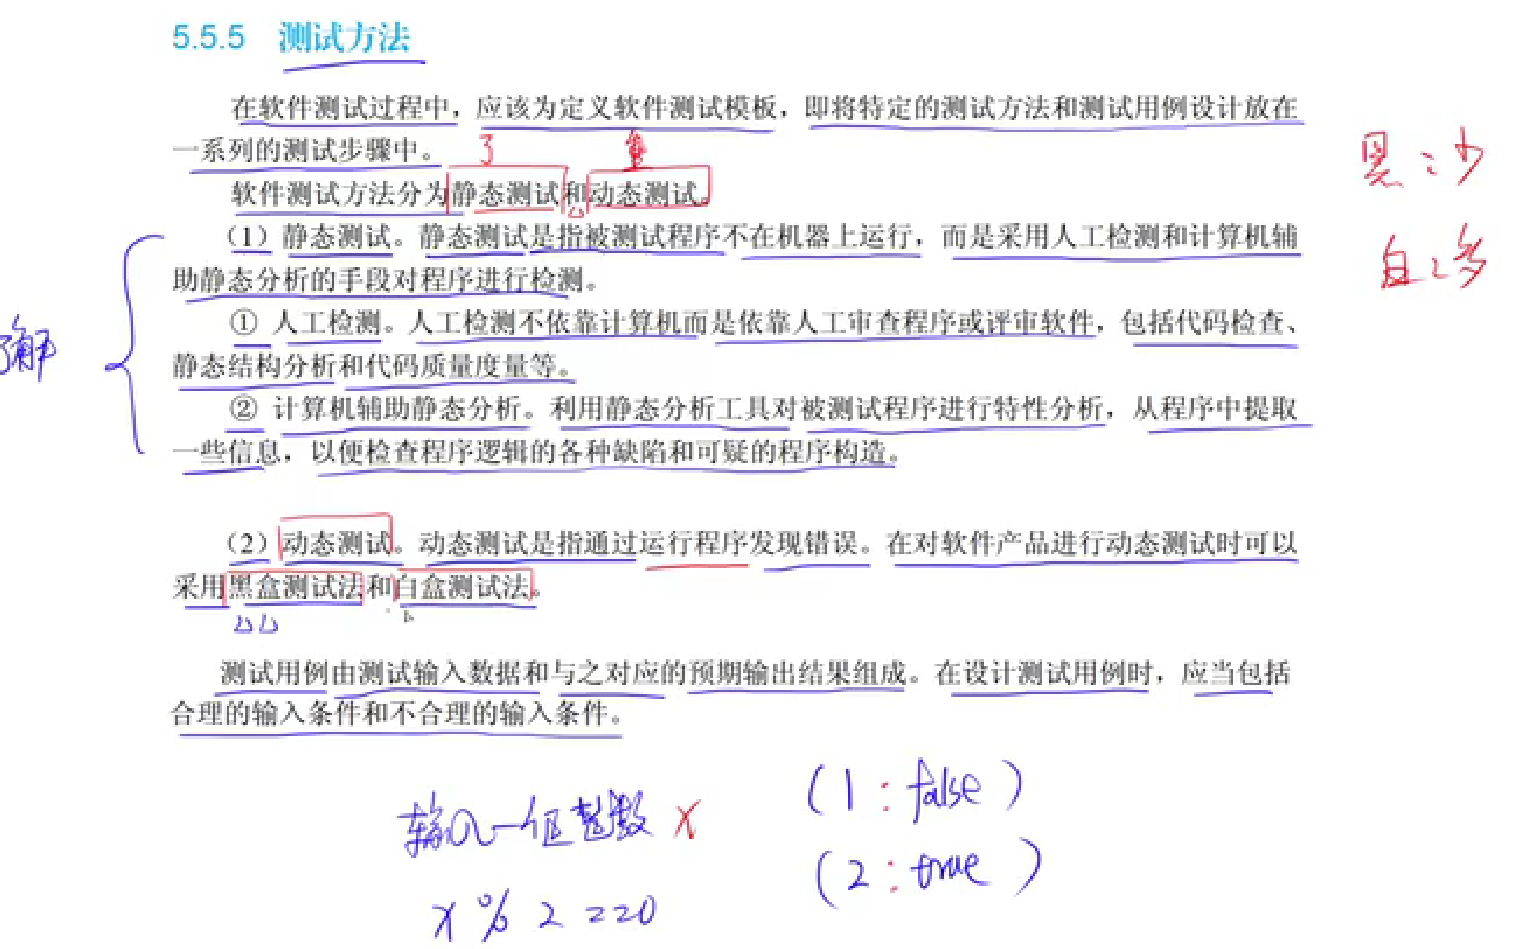 5.5.5 测试方法
在软件测试过程中，应该为定义软件测试模板，即将特定的测试方法和测试用例设计放在
一系列的测试步骤中。
软件测试方法分为静态测试和动态测试。
（1）静态测试。静态测试是指被测试程序不在机器上运行，而是采用人工检测和计算机辅
助静态分析的手段对程序进行检测。
① 人工检测。人工检测不依靠计算机而是依靠人工审查程序或评审软件，包括代码检查、
静态结构分析和代码质量度量等。
② 计算机辅助静态分析。利用静态分析工具对被测试程序进行特性分析，从程序中提取
一些信息，以便检查程序逻辑的各种缺陷和可疑的程序构造。
（2）动态测试。动态测试是指通过运行程序发现错误。在对软件产品进行动态测试时可以
采用黑盒测试法和白盒测试法。
测试用例由测试输入数据和与之对应的预期输出结果组成。在设计测试用例时，应当包括
合理的输入条件和不合理的输入条件。
黑：少
白：多
了解
输入一个整数 x
x % 2 == 0
(1 : false)
(2 : true)